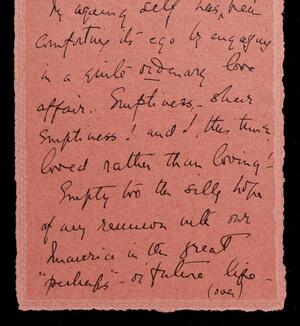 My ageing self has been
comforting its ego by engaging
in a quite ordinary love
affair. Emptiness – sheer
emptiness! and I, this time
loved rather than loving!
Empty too the silly hope
of any reunion with our
in the great
"perhaps" – or future life –
(over)